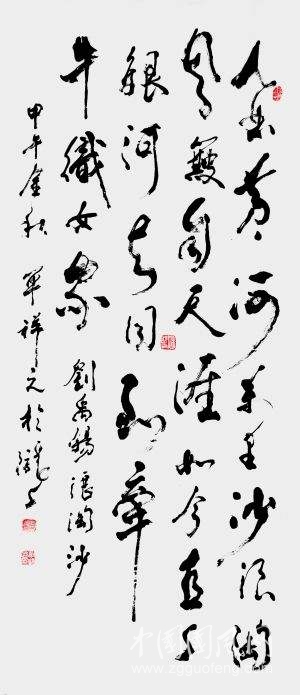 九曲黄河萬里沙浪淘
風簸自天涯如今直上
銀河去同到牽
牛織女家 劉禹錫浪淘沙
甲午金秋 單祥元於
中国国风网
www.zgguofeng.com